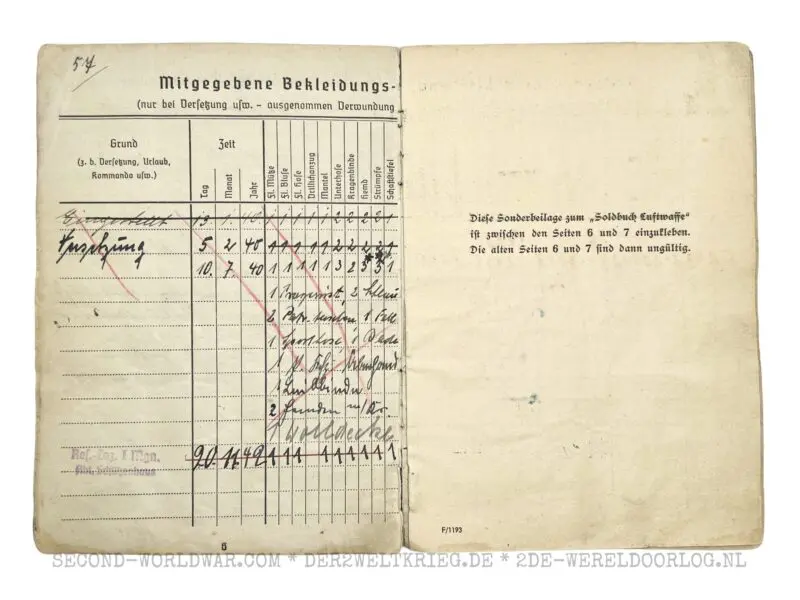 57
Mitgegebene Bekleidungs-
(nur bei Versetzung usw. – ausgenommen Verwundung
Grund
(z. b. Versetzung, Urlaub,
Kommando usw.)
Zeit
Tag
Monat
Jahr
Fl. Mütze
Fl. Bluse
Fl. Hose
Drillichanzug
Mantel
Unterhose
Kragenbinde
Hemd
Strümpfe
Schaftstiefel
13 1 40 1 1 1 1 1 2 2 2 2 1
Versetzung 5 2 40 1 1 1 1 1 2 2 2 2 1
10. 7. 40 1 1 1 1 1 3 2 5 5 1
1 2
2 1
1 Sporthose 1
1
1 Leibbinde
2 Hemden m/Kr.
1 Wolldecke
Res.-Laz. I
20. 11. 42 1 1 1 1 1 1 1 1 1
Abt. Schützenhaus
6
Diese Sonderbeilage zum „Soldbuch Luftwaffe“
ist zwischen den Seiten 6 und 7 einzukleben.
Die alten Seiten 6 und 7 sind dann ungültig.
F/1193
SECOND-WORLDWAR.COM * DER2WELTKRIEG.DE * 2DE-WERELDOORLOG.NL